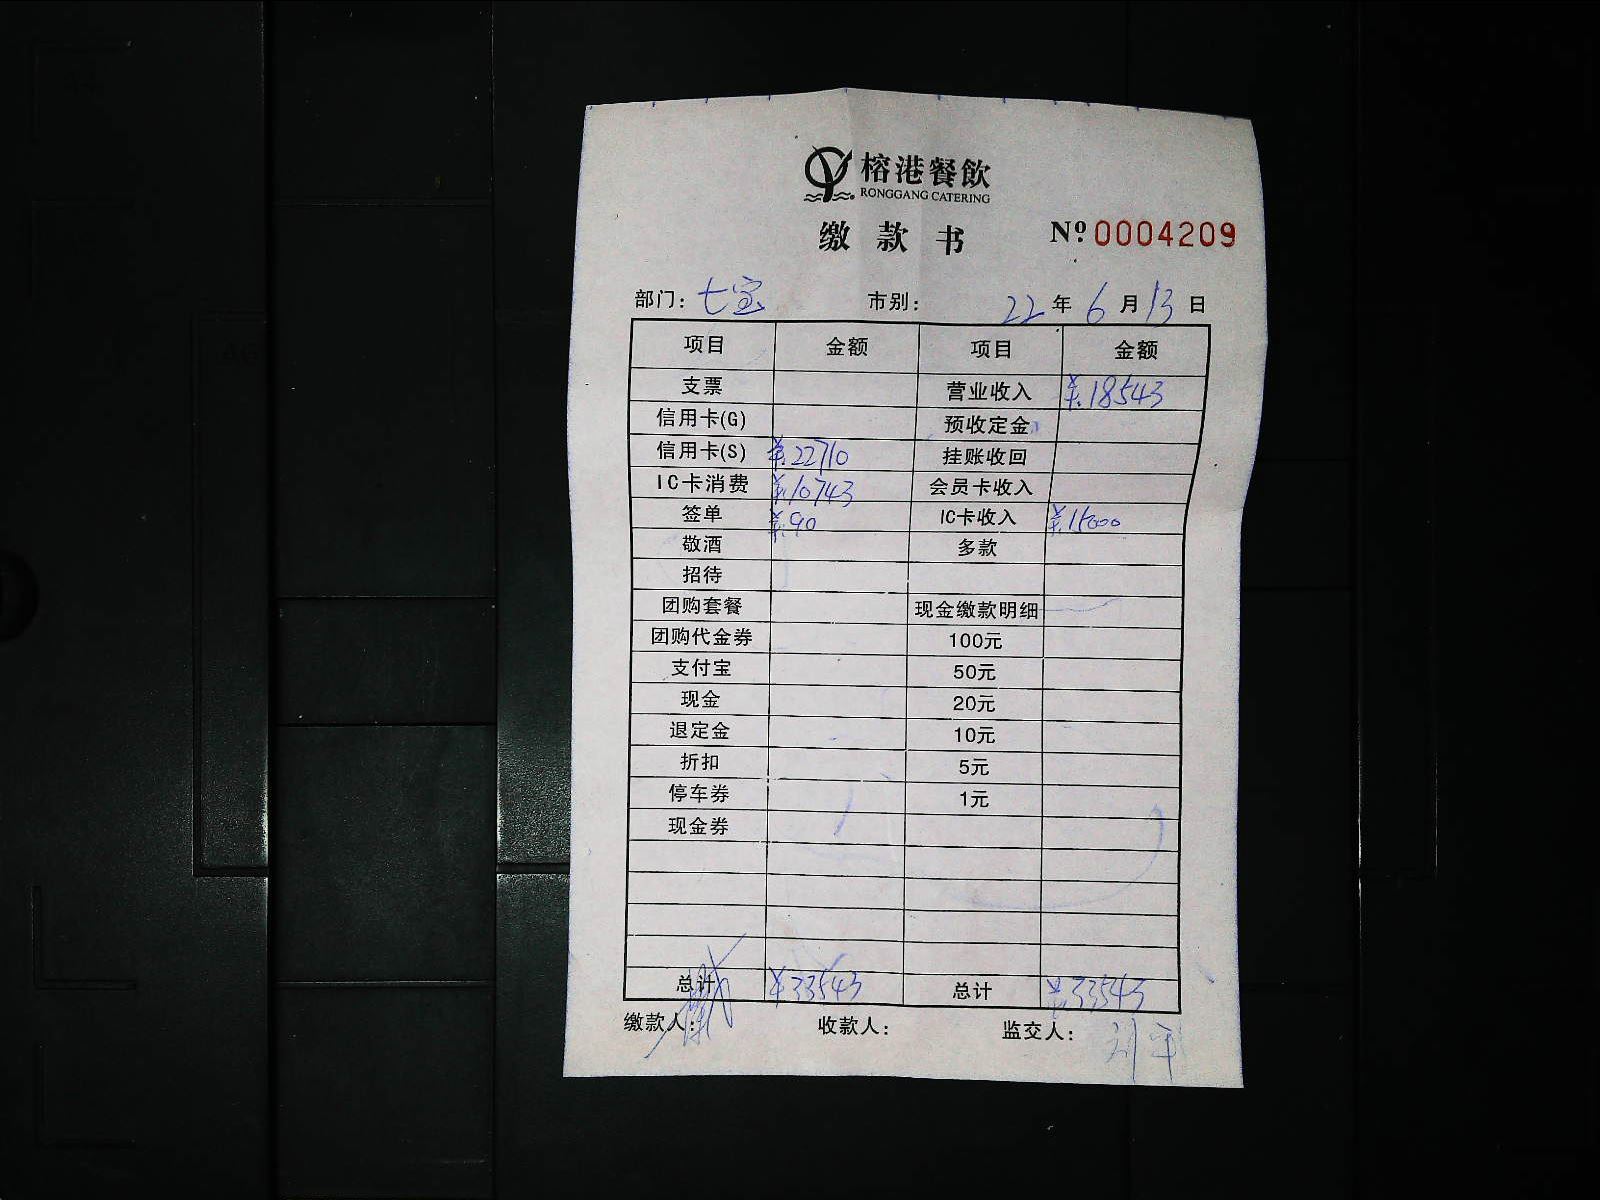 榕港餐飲
RONGGANG CATERING
缴款书 Nº 0004209
部门: 七宝 市别: 22年6月13日
项目 金额 项目 金额
支票 营业收入 ¥.18543
信用卡(G) 预收定金
信用卡(S) ¥.22710 挂账收回
IC卡消费 ¥.10743 会员卡收入
签单 ¥.90 IC卡收入 ¥.15000
敬酒 多款
招待
团购套餐 现金缴款明细
团购代金券 100元
支付宝 50元
现金 20元
退定金 10元
折扣 5元
停车券 1元
现金券
总计 ¥33543 总计 ¥33543
缴款人: 收款人: 监交人: 刘平